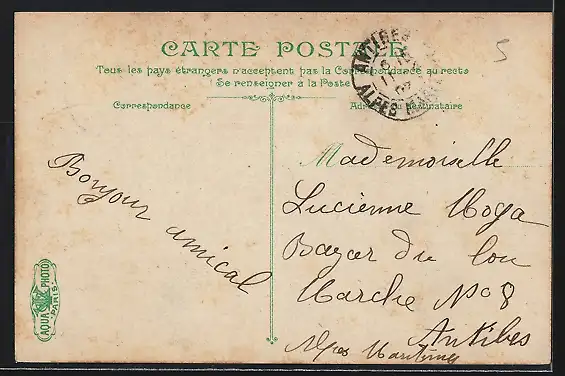 CARTE POSTALE
Tous les pays étrangers n'acceptent pas la Correspondance au recto
(Se renseigner à la Poste)
Correspondance
Adresse du Destinataire
ANTIBES
ALPES MARIT
5
Bonjour amical
Mademoiselle
Lucienne Moya
Bazar du
Marche No 8
Antibes
Alpes Maritimes
AQUA PHOTO
PARIS